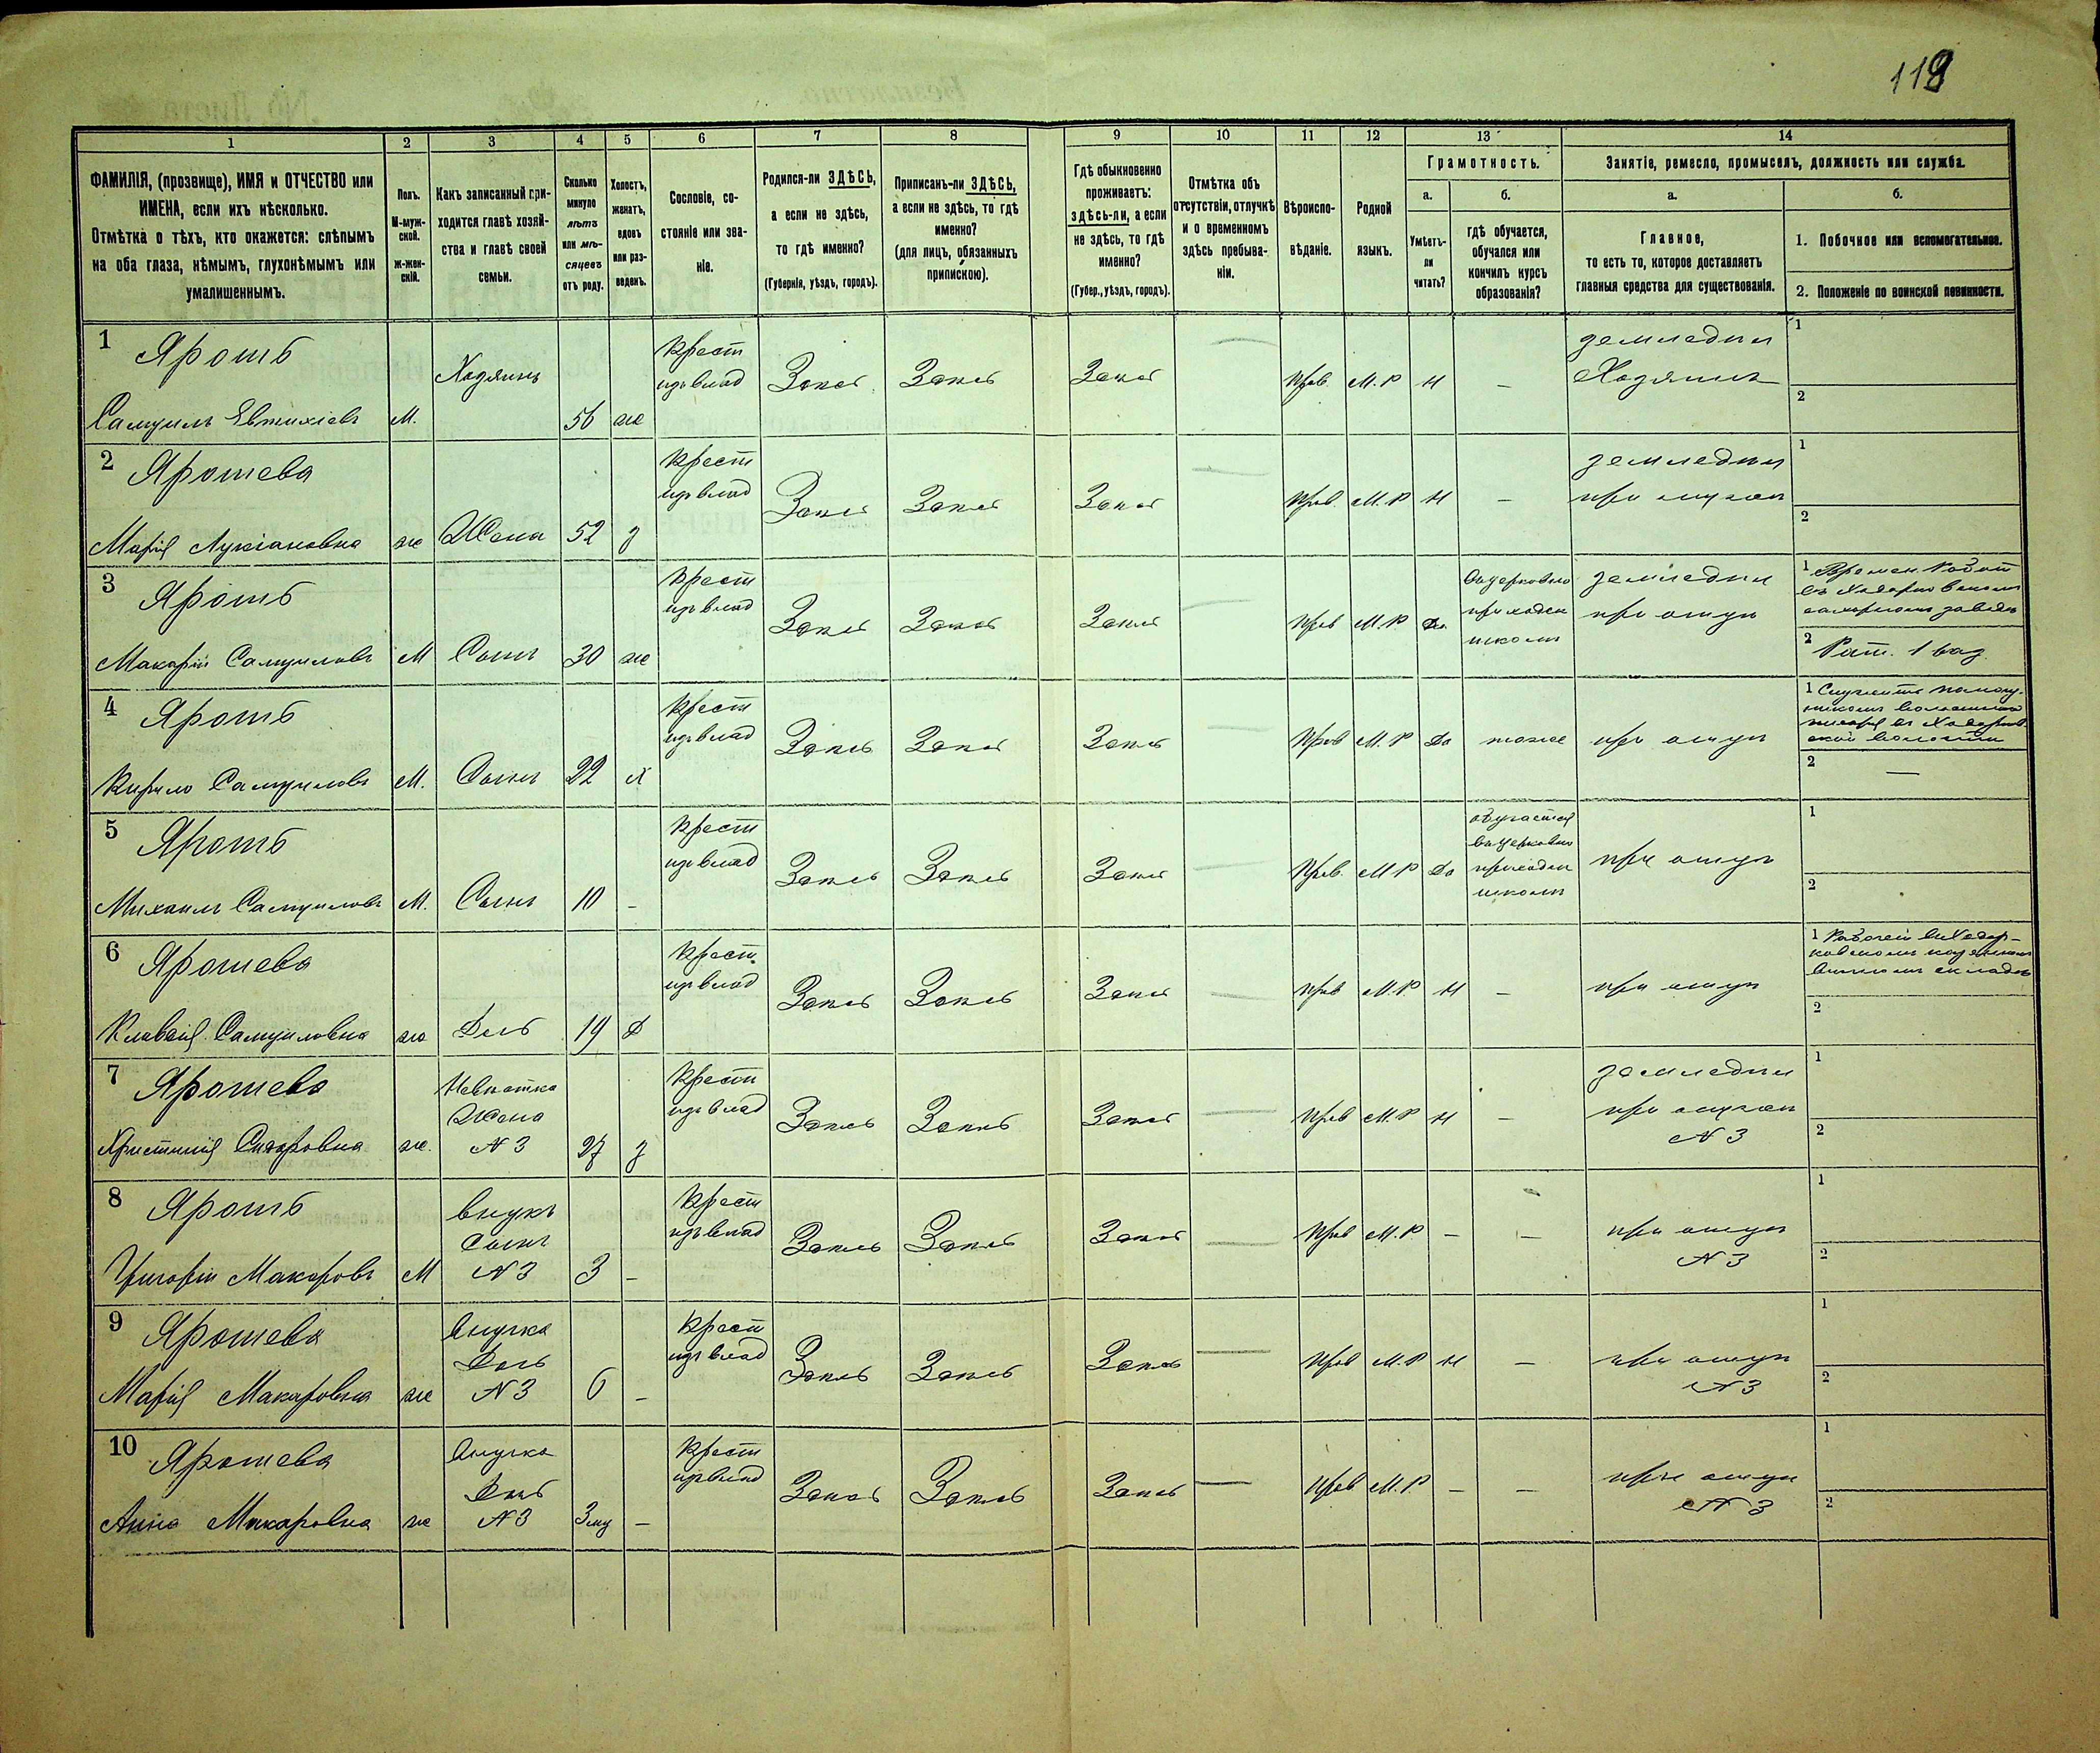 119
1 2 3 4 5 6 7 8 9 10 11 12 13 14
ФАМИЛІЯ, (прозвище), ИМЯ и ОТЧЕСТВО или
ИМЕНА, если ихъ нѣсколько.
Отмѣтка о тѣхъ, кто окажется: слѣпымъ
на оба глаза, нѣмымъ, глухонѣмымъ или
умалишеннымъ.
Полъ.
М-муж-
ской.
ж-жен-
скій.
Какъ записанный при-
ходится главѣ хозяй-
ства и главѣ своей
семьи.
Сколько
минуло
лѣтъ
или мѣ-
сяцевъ
отъ роду.
Холостъ,
женатъ,
вдовъ
или раз-
веденъ.
Сословіе, со-
стояніе или зва-
ніе.
Родился-ли ЗДѢСЬ,
а если не здѣсь,
то гдѣ именно?
(Губернія, уѣздъ, городъ).
Приписанъ-ли ЗДѢСЬ,
а если не здѣсь, то гдѣ
именно?
(для лицъ, обязанныхъ
припискою).
Гдѣ обыкновенно
проживаетъ:
здѣсь-ли, а если
не здѣсь, то гдѣ
именно?
(Губер., уѣздъ, городъ).
Отмѣтка объ
отсутствіи, отлучкѣ
и о временномъ
здѣсь пребыва-
ніи.
Вѣроиспо-
вѣданіе.
Родной
языкъ.
Грамотность.
а.
Умѣетъ-
ли
читать?
б.
гдѣ обучается,
обучался или
кончилъ курсъ
образованія?
Занятіе, ремесло, промыселъ, должность или служба.
а.
Главное,
то есть то, которое доставляетъ
главныя средства для существованія.
б.
1. Побочное или вспомогательное.
2. Положеніе по воинской повинности.
1 Ярошъ
Самуилъ Евтихіевъ М. Хозяинъ 56 ж
Крест
изъ влад Прав. М. Р Н — земледѣл
Хозяинъ
1
2
2 Ярошева
Марія Лукіановна ж Жена 52 з
Крест
изъ влад Прав. М. Р Н — земледѣл
при мужѣ
1
2
3 Ярошъ
Макарій Самуиловъ М Сынъ 30 ж
Крест
изъ влад Прав М. Р Да
приходск
школѣ
земледѣл
при отцѣ
1 Времен. работ
сахарномъ заводѣ
2 Рат. 1 раз.
4 Ярошъ
Кирило Самуиловъ М. Сынъ 22 х
Крест
изъ влад Прав М. Р Да тоже при отцѣ
1 Служитъ помощ-
никомъ волостного
писаря въ Ходорков-
ской волости
2 —
5 Ярошъ
Михаилъ Самуиловъ М. Сынъ 10 —
Крест
изъ влад Прав. М. Р Да
обучается
въ церковно
приходск
школѣ
при отцѣ
1
2
6 Ярошева
Клавдія Самуиловна ж Дочь 19 Д
Крест.
изъ влад Прав М. Р. Н — при отцѣ
1 Рабочей въ Ходор-
ковскомъ казенномъ
винномъ складѣ
2
7 Ярошева
Христинія Сидоровна ж. Невѣстка
Жена
N 3 27 з
Крест
изъ влад Прав М. Р Н — земледѣл
при мужѣ
N 3
1
2
8 Ярошъ
Григорій Макаровъ М внукъ
Сынъ
N 3 3 —
Крест
изъ влад Прав М. Р — — при отцѣ
N 3
1
2
9 Ярошева
Марія Макаровна ж Внучка
Дочь
N 3 6 —
Крест
изъ влад Прав М. Р Н — при отцѣ
N 3
1
2
10 Ярошева
Анна Макаровна ж Внучка
Дочь
N 3 3 мц —
Крест
изъ влад Прав М. Р — — при отцѣ
N 3
1
2